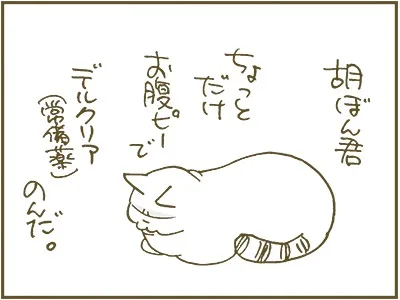 胡ぼん君
ちょっと
だけ
お腹ピーで
デルクリア
(常備薬)
のんだ。